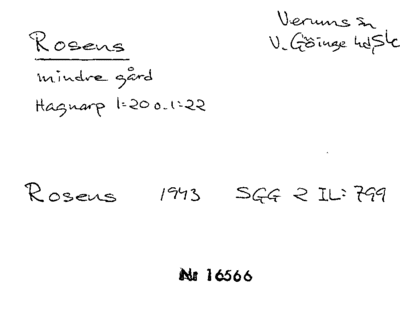 Rosens
mindre gård
Hagnarp 1:20 o. 1:22
Verums sn
V. Göinge hd, Sk
Rosens 1943 SGG 2 IL: 799
Nr 16566